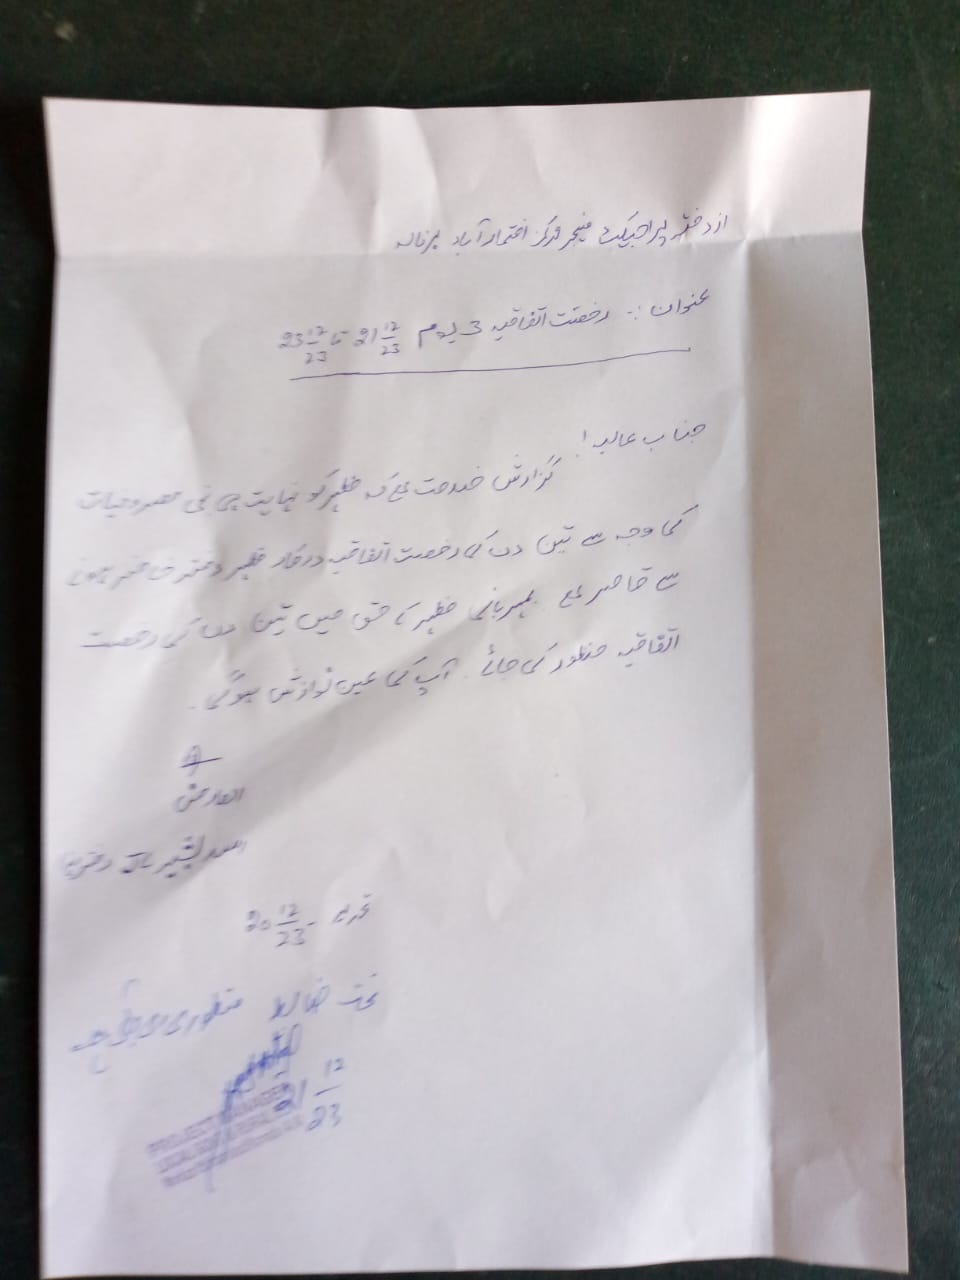 از دفتر پراجیکٹ منیجر مرکز افتخار آباد برنالہ
عنوان :- رخصت اتفاقیہ 3 یوم 21 12/23 تا 23 12/23
جناب عالیہ !
گزارش خدمت ہے کہ مظہر کو نہایت ہی نجی مصروفیات
کی وجہ سے تین دن کی رخصت اتفاقیہ درکار مظہر دفتر حاضر ہونے
سے قاصر ہے بمہربانی مظہر کے حق میں تین دن کی رخصت
اتفاقیہ منظور کی جائے . آپ کی عین نوازش ہوگی .
العارض
بشیر
تحریر - 20 12/23
تحت ضابطہ منظوری دی جاتی ہے
21 12/23
PROJECT MANAGER
LOCAL GOVT &